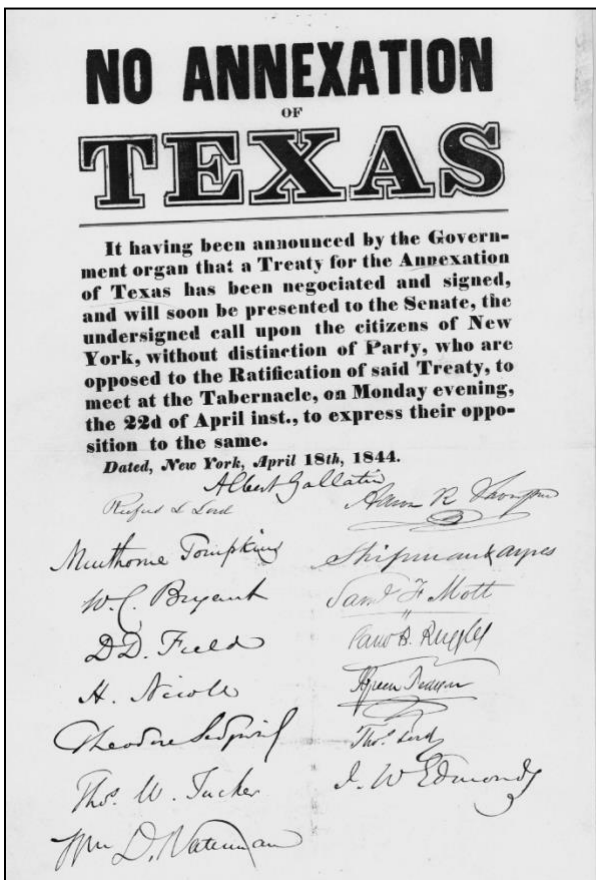 NO ANNEXATION
OF
TEXAS
It having been announced by the Govern-
ment organ that a Treaty for the Annexation
of Texas has been negociated and signed,
and will soon be presented to the Senate, the
undersigned call upon the citizens of New
York, without distinction of Party, who are
opposed to the Ratification of said Treaty, to
meet at the Tabernacle, on Monday evening,
the 22d of April inst., to express their oppo-
sition to the same.
Dated, New York, April 18th, 1844.
Albert Gallatin
Rufus L Lord
Minthorne Tompkins
W. C. Bryant
D D. Field
H. Nicoll
Theodore Sedgwick
Thos. W. Tucker
Wm D. Waterman
Aaron R Thompson
Shipman & ayres
Saml F Mott
Saml B. Ruggles
Thos. Lord
J. W Edmonds